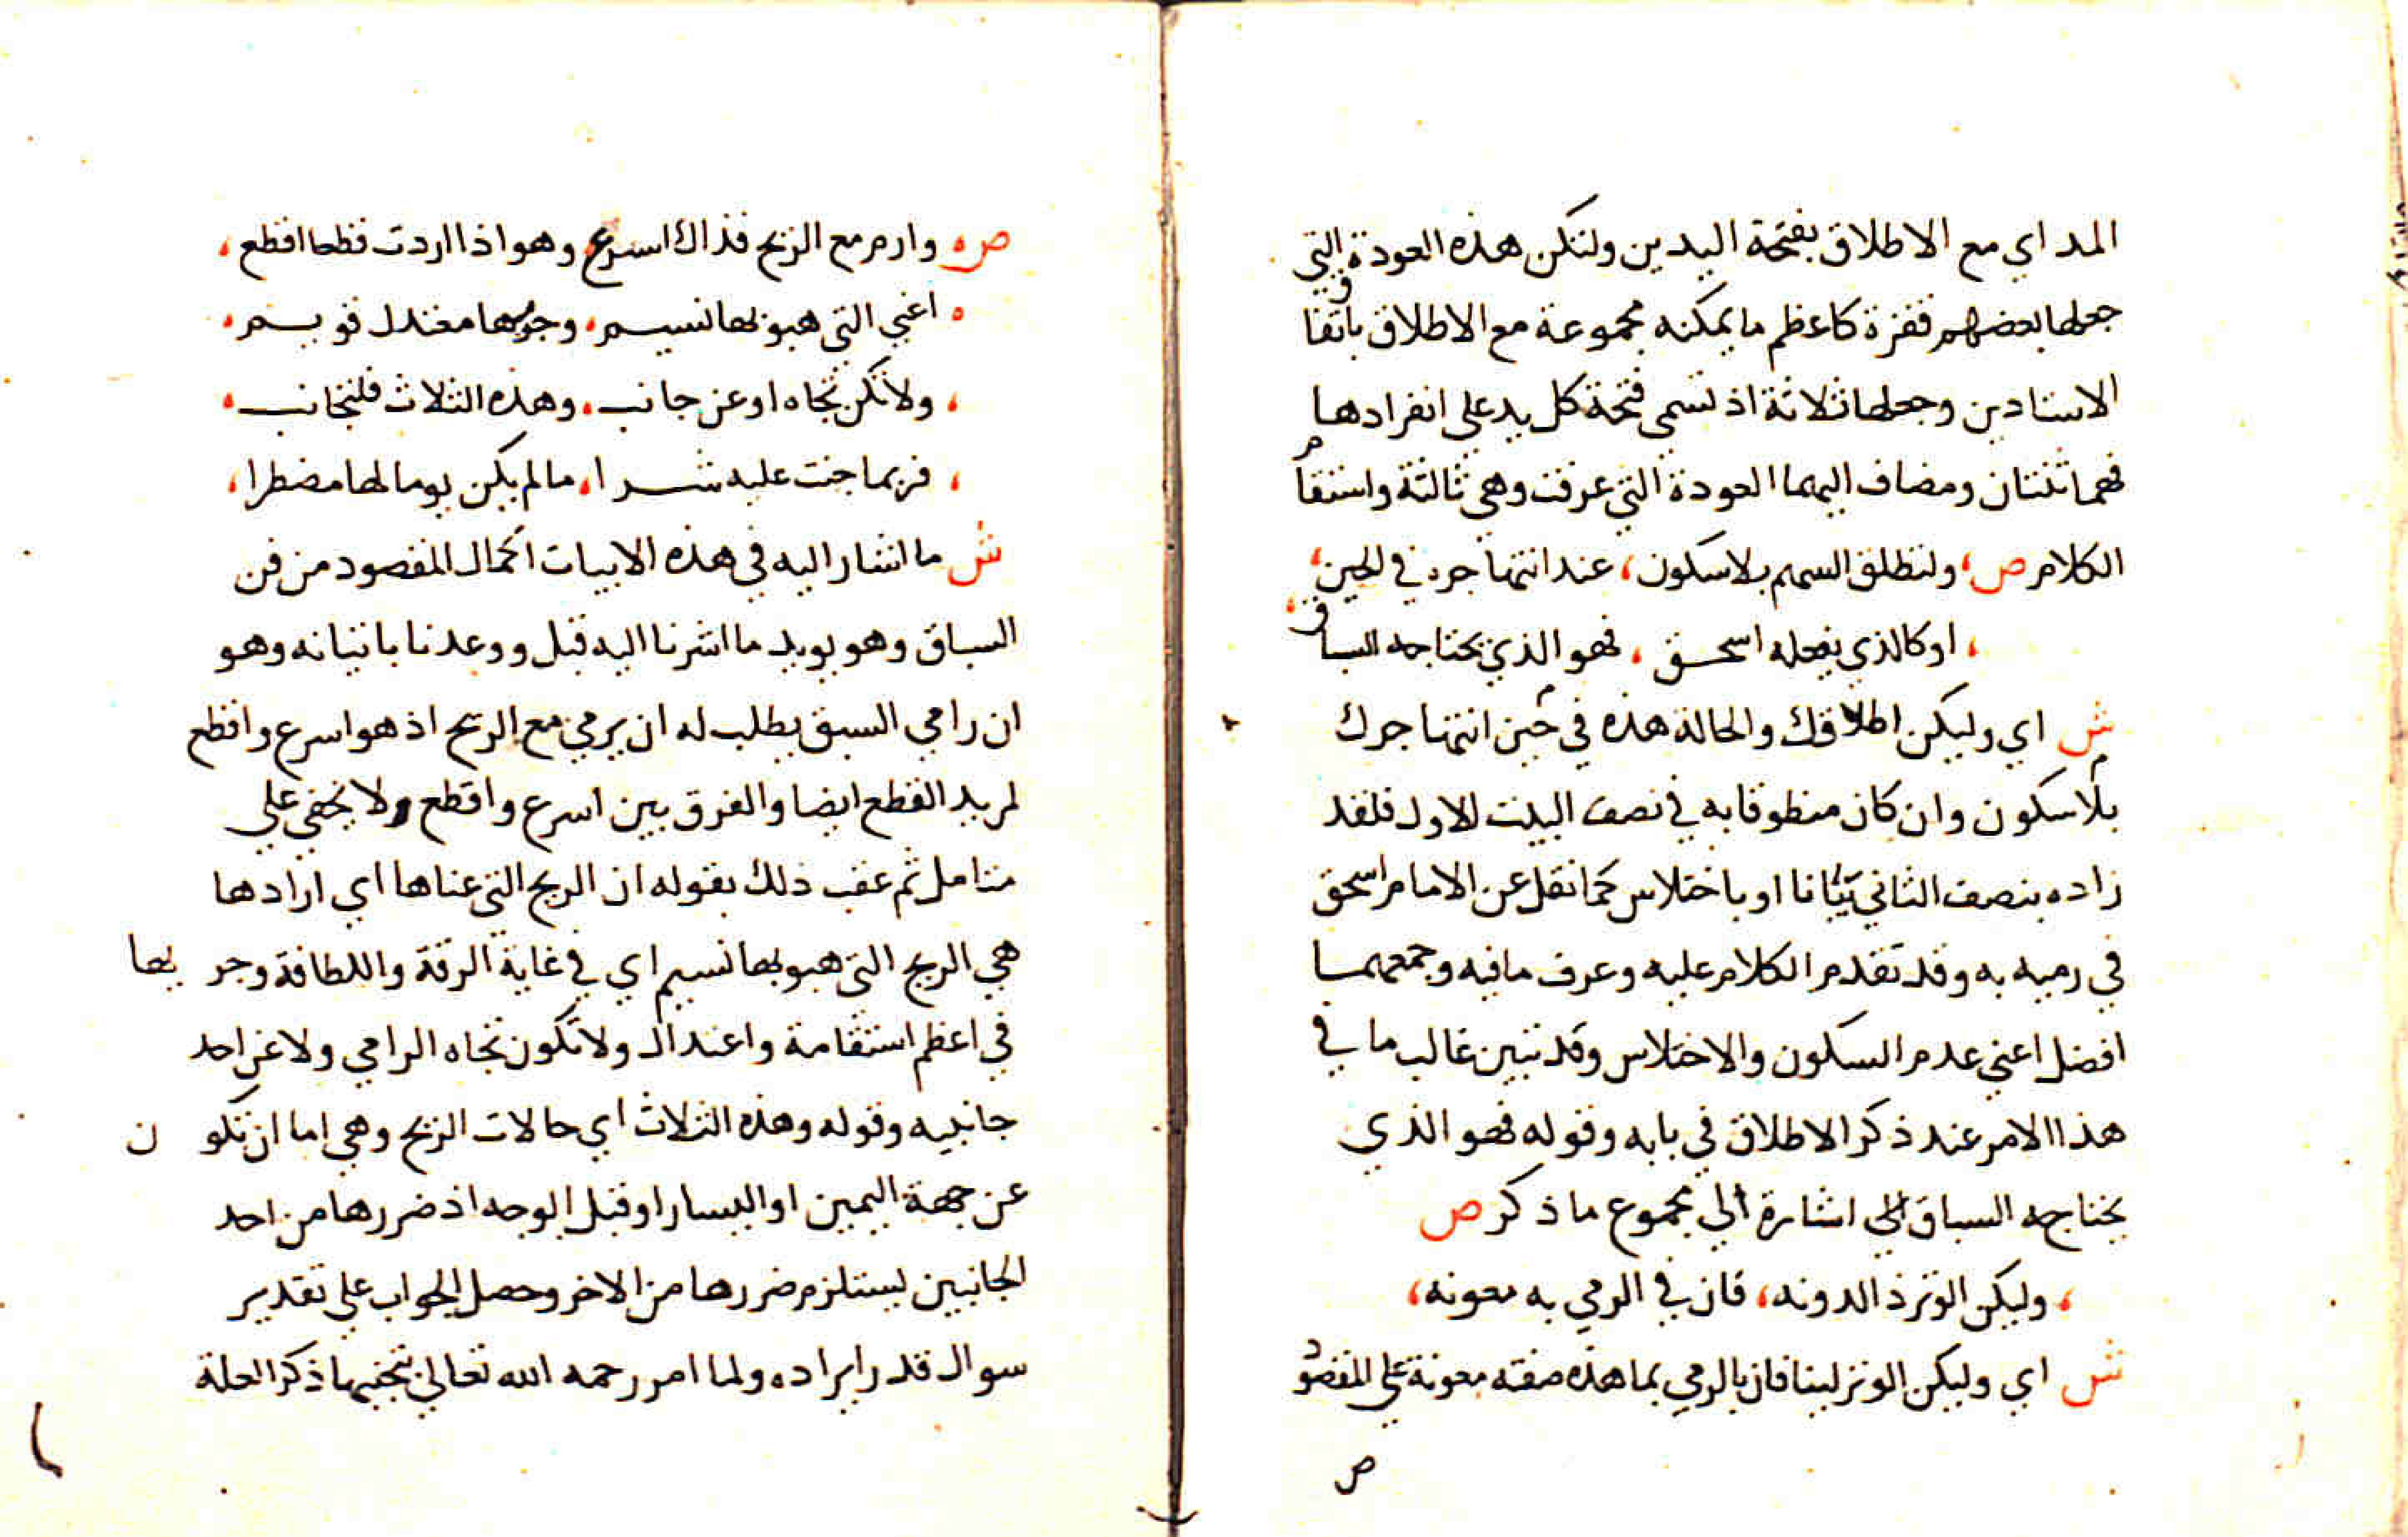 المد اي مع الاطلاق بفتحة اليدين ولتكن هذه العودة التي
جعلها بعضهم قفزة كاعظم ما يمكنه مجموعة مع الاطلاق باتفاق
الاستادين وجعلها ثلاثة اذ تسمي فتحة كل يد علي انفرادها
فهما ثنتان ومضاف اليهما العودة التي عرفت وهي ثالثة واستقام
الكلام ص، ولتطلق السهم بلا سكون، عند انتها جره في الحين،
، او كالذي يفعله اسحق، فهو الذي يحتاجه السباق،
ش اي وليكن اطلاقك والحالة هذه في حين انتها جرك
بلا سكون وان كان منطوقا به في نصف البيت الاول فلقد
زاده بنصف الثاني تبيانا او باختلاس كما نقل عن الامام اسحق
في رميه به وقد تقدم الكلام عليه وعرف ما فيه وجمعهما
افضل اعني عدم السكون والاختلاس وقد تبين غالب ما في
هذا الامر عند ذكر الاطلاق في بابه وقوله فهو الذي
يحتاجه السباق الي اشارة الي مجموع ما ذكر ص
، وليكن الوتر ذا لدونه، فان في الرمي به معونه،
ش اي وليكن الوتر لينا فان بالرمي بما هذه صفته معونة علي المقصود
ص
ص وارم مع الريح فذاك اسرع وهو اذا اردت قطعا اقطع،
اعني التي هبوبها نسيم، وجريها معتدل قويم،
، ولا تكن تجاه او عن جانب، وهذه الثلاث فلتجانب،
، فربما جنت عليه شرا، ما لم يكن يوما لها مضطرا،
ش ما اشار اليه في هذه الابيات اكمال المقصود من فن
السباق وهو يويد ما اشرنا اليه قبل ووعدنا باتيانه وهو
ان رامي السبق يطلب له ان يرمي مع الريح اذ هو اسرع واقطع
لمريد القطع ايضا والفرق بين اسرع واقطع ولا يخفي علي
متامل ثم عقب ذلك بقوله ان الريح التي عناها اي ارادها
هي الريح التي هبوبها نسيم اي في غاية الرقة واللطافة وجريها
في اعظم استقامة واعتدال ولا تكون تجاه الرامي ولا عن احد
جانبيه وقوله وهذه الثلاث اي حالات الريح وهي اما ان تكون
عن جهة اليمين او اليسار او قبل الوجه اذ ضررها من احد
الجانبين يستلزم ضررها من الاخر وحصل الجواب علي تقدير
سوال قدر ايراده ولما امر رحمه الله تعالي بتجنبها ذكر العلة